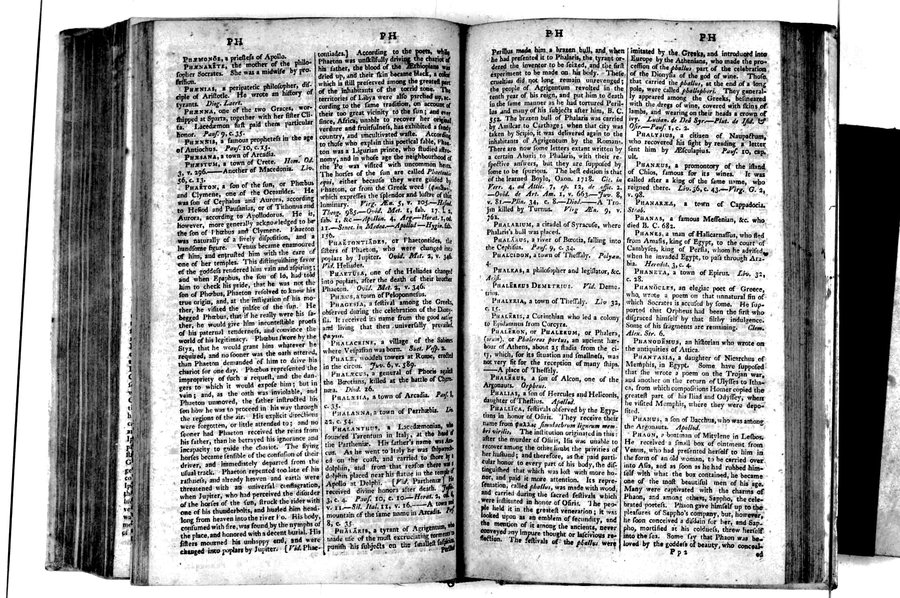 PH
PHÆMONŌE, a priestess of Apollo.
PHÆNARĔTE, the mother of the philo-
sopher Socrates. She was a midwife by pro-
fession.
PHÆNIAS, a peripatetic philosopher, dis-
ciple of Aristotle. He wrote an history of
tyrants. Diog. Laert.
PHÆNNA, one of the two Graces, wor-
shipped at Sparta, together with her sister Cli-
ta. Lacedæmon first paid them particular
honor. Paus. 9, c. 35.
PHÆNNIS, a famous prophetess in the age
of Antiochus. Paus. 10, c. 15.
PHÆSANA, a town of Arcadia.
PHÆSTUM, a town of Crete. Hom. Od.
3, v. 296.—Another of Macedonia. Liv.
36, c. 13.
PHAETON, a son of the sun, or Phœbus
and Clymene, one of the Oceanides. He
was son of Cephalus and Aurora, according
to Hesiod and Pausanias, or of Tithonus and
Aurora, according to Apollodorus. He is,
however, more generally acknowledged to be
the son of Phœbus and Clymene. Phaeton
was naturally of a lively disposition, and a
handsome figure. Venus became enamoured
of him, and entrusted him with the care of
one of her temples. This distinguishing favor
of the goddess rendered him vain and aspiring;
and when Epaphus, the son of Io, had told
him to check his pride, that he was not the
son of Phœbus, Phaeton resolved to know his
true origin, and, at the instigation of his mo-
ther, he visited the palace of the sun. He
begged Phœbus, that if he really were his fa-
ther, he would give him incontestible proofs
of his paternal tenderness, and convince the
world of his legitimacy. Phœbus swore by the
Styx, that he would grant him whatever he
required, and no sooner was the oath uttered,
than Phaeton demanded of him to drive his
chariot for one day. Phœbus represented the
impropriety of such a request, and the dan-
gers to which it would expose him; but in
vain; and, as the oath was inviolable, and
Phaeton unmoved, the father instructed his
son how he was to proceed in his way through
the regions of the air. His explicit directions
were forgotten, or little attended to; and no
sooner had Phaeton received the reins from
his father, than he betrayed his ignorance and
incapacity to guide the chariot. The flying
horses became sensible of the confusion of their
driver, and immediately departed from the
usual track. Phaeton repented too late of his
rashness, and already heaven and earth were
threatened with an universal conflagration,
when Jupiter, who had perceived the disorder
of the horses of the sun, struck the rider with
one of his thunderbolts, and hurled him head-
long from heaven into the river Po. His body,
consumed with fire, was found by the nymphs of
the place, and honored with a decent burial. His
sisters mourned his unhappy end, and were
changed into poplars by Jupiter. [Vid. Phae-
PH
tontiades.] According to the poets, while
Phaeton was unskilfully driving the chariot of
his father, the blood of the Æthiopians was
dried up, and their skin became black, a color
which is still preserved among the greatest part
of the inhabitants of the torrid zone. The
territories of Libya were also parched up, ac-
cording to the same tradition, on account of
their too great vicinity to the sun; and ever
since, Africa, unable to recover her original
verdure and fruitfulness, has exhibited a sandy
country, and uncultivated waste. According
to those who explain this poetical fable, Phae-
ton was a Ligurian prince, who studied astro-
nomy, and in whose age the neighbourhood of
the Po was visited with uncommon heats.
The horses of the sun are called Phaetontis
equi, either because they were guided by
Phaeton, or from the Greek word
which expresses the splendor and lustre of that
luminary. Virg. Æn. 5, v. 105.—Hesiod.
Theog. 985.—Ovid. Met. 1, fab. 17. l. 2,
fab. 1, &c.—Apollon. 4, Arg.—Horat. 4, od.
11.—Senec. in Medea.—Apollod.—Hygin. fab.
156.
PHAETONTIĂDES, or Phaetontides, the
sisters of Phaeton, who were changed into
poplars by Jupiter. Ovid. Met. 2, v. 346.
Vid. Heliades.
PHAETUSA, one of the Heliades changed
into poplars, after the death of their brother
Phaeton. Ovid. Met. 2, v. 346.
PHÆUS, a town of Peloponnesus.
PHAGESIA, a festival among the Greeks,
observed during the celebration of the Diony-
sia. It received its name from the good eating
and living that then universally prevailed,
φαγειν.
PHALACRINE, a village of the Sabines
where Vespasian was born. Suet. Vesp. 2.
PHALÆ, wooden towers at Rome, erected
in the circus. Juv. 6, v. 589.
PHALÆCUS, a general of Phocis against
the Bœotians, killed at the battle of Chæro-
næa. Diod. 16.
PHALÆSIA, a town of Arcadia. Paus. 8,
c. 35.
PHALANNA, a town of Perrhæbia. Liv.
42, c. 54.
PHALANTHUS, a Lacedæmonian, who
founded Tarentum in Italy, at the head of
the Partheniæ. His father's name was Ara-
cus. As he went to Italy he was shipwreck-
ed on the coast, and carried to shore by a
dolphin, and from that reason there was a
dolphin placed near his statue in the temple of
Apollo at Delphi. [Vid. Partheniæ] He
received divine honors after death. Justin.
3, c. 4. Paus. 10, c. 10.—Horat. 2, od. 6,
v. 11.—Sil. Ital. 11, v. 16.—A town and
mountain of the same name in Arcadia. Paus.
8, c. 35
PHĂLĂRIS, a tyrant of Agrigentum, who
made use of the most excruciating torments to
punish his subjects on the smallest suspicion.
Perillus
PH
Perillus made him a brazen bull, and when
he had presented it to Phalaris, the tyrant or-
dered the inventor to be seized, and the first
experiment to be made on his body. These
cruelties did not long remain unrevenged;
the people of Agrigentum revolted in the
tenth year of his reign, and put him to death
in the same manner as he had tortured Peril-
lus and many of his subjects after him, B. C.
552. The brazen bull of Phalaris was carried
by Amilcar to Carthage; when that city was
taken by Scipio, it was delivered again to the
inhabitants of Agrigentum by the Romans.
There are now some letters extant written by
a certain Abaris to Phalaris, with their re-
spective answers, but they are supposed by
some to be spurious. The best edition is that
of the learned Boyle, Oxon. 1718. Cic. in
Verr. 4. ad Attic. 7, ep. 12, de offic. 2.
—Ovid. de Art. Am. 1, v. 663.—Juv. 8,
v. 81.—Plin. 34, c. 8.—Diod.—A Tro-
jan killed by Turnus. Virg Æn. 9, v.
762.
PHALARIUM, a citadel of Syracuse, where
Phalaris's bull was placed.
PHALARUS, a river of Bœotia, falling into
the Cephisus. Paus. 9, c. 34.
PHALCIDON, a town of Thessaly. Polyæn.
4.
PHALEAS, a philosopher and legislator, &c.
Arist.
PHALĒREUS DEMETRIUS. Vid. Deme-
trius.
PHALERIA, a town of Thessaly. Liv 32,
c. 15.
PHALĒRIS, a Corinthian who led a colony
to Epidamnus from Corcyra.
PHALĒRON, or PHALERUM, or Phalera,
(orum), or Phalereus portus, an ancient har-
bour of Athens, about 25 stadia from the ci-
ty, which, for its situation and smallness, was
not very fit for the reception of many ships.
—A place of Thessaly.
PHALĒRUS, a son of Alcon, one of the
Argonauts. Orpheus.
PHALIAS, a son of Hercules and Heliconis,
daughter of Thestius. Apollod.
PHALLĬCA, festivals observed by the Egyp-
tians in honor of Osiris. They receive their
name from φαλλος simulachrum ligneum mem-
bri virilis. The institution originated in this:
after the murder of Osiris, Isis was unable to
recover among the other limbs the privities of
her husband; and therefore, as she paid parti-
cular honor to every part of his body, she dis-
tinguished that which was lost with more ho-
nor, and paid it more attention. Its repre-
sentation, called phallus, was made with wood,
and carried during the sacred festivals which
were instituted in honor of Osiris. The peo-
ple held it in the greatest veneration; it was
looked upon as an emblem of fecundity, and
the mention of it among the ancients, never
conveyed any impure thought or lascivious re-
flection. The festivals of the phallus were
PH
imitated by the Greeks, and introduced into
Europe by the Athenians, who made the pro-
cession of the phallus part of the celebration
of the Dionysia of the god of wine. Those
that carried the phallus, at the end of a long
pole, were called phallophori. They general-
ly appeared among the Greeks, besmeared
with the dregs of wine, covered with skins of
lambs, and wearing on their heads a crown of
ivy. Lucian. de Deâ Syr.—Plut. de Isid. &
Osir.—Paus. 1, c. 2.
PHALYSIUS, a citizen of Naupactum,
who recovered his sight by reading a letter
sent him by Æsculapius. Paus. 10, cap.
ult.
PHANÆUS, a promontory of the island
of Chios, famous for its wines. It was
called after a king of the same name, who
reigned there. Liv. 36, c. 43.—Virg. G. 2,
v. 98.
PHANARÆA, a town of Cappadocia.
Strab.
PHANAS, a famous Messenian, &c. who
died B. C. 682.
PHANES, a man of Halicarnassus, who fled
from Amasis, king of Egypt, to the court of
Cambyses, king of Persia, whom he advised,
when he invaded Egypt, to pass through Ara-
bia. Herodot. 3, c. 4.
PHANETA, a town of Epirus. Liv. 32,
c. 28.
PHANŎCLES, an elegiac poet of Greece,
who wrote a poem on that unnatural sin of
which Socrates is accused by some. He sup-
ported that Orpheus had been the first who
disgraced himself by that filthy indulgence.
Some of his fragments are remaining. Clem.
Alex. Str. 6.
PHANODĒMUS, an historian who wrote on
the antiquities of Attica.
PHANTASIA, a daughter of Nicarchus of
Memphis, in Egypt. Some have supposed
that she wrote a poem on the Trojan war,
and another on the return of Ulysses to Itha-
ca, from which compositions Homer copied the
greatest part of his Iliad and Odyssey, when
he visited Memphis, where they were depo-
sited.
PHANUS, a son of Bacchus, who was among
the Argonauts. Apollod.
PHAON, a boatman of Mitylene in Lesbos.
He received a small box of ointment from
Venus, who had presented herself to him in
the form of an old woman, to be carried over
into Asia, and as soon as he had rubbed him-
self with what the box contained, he became
one of the most beautiful men of his age.
Many were captivated with the charms of
Phaon, and among others, Sappho, the cele-
brated poetess. Phaon gave himself up to the
pleasures of Sappho's company, but, however,
he soon conceived a disdain for her, and Sap-
pho, mortified at his coldness, threw herself
into the sea. Some say that Phaon was be-
loved by the goddess of beauty, who conceal-
Pp2
ed